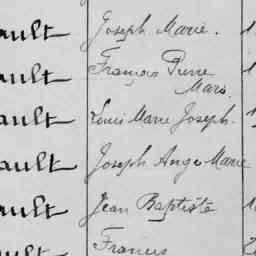 ault Joseph Marie. 1
ault François Pierre
Mars.
ault Louis Marie Joseph.
ault Joseph Ange Marie
ault Jean Baptiste 1
ault Francis